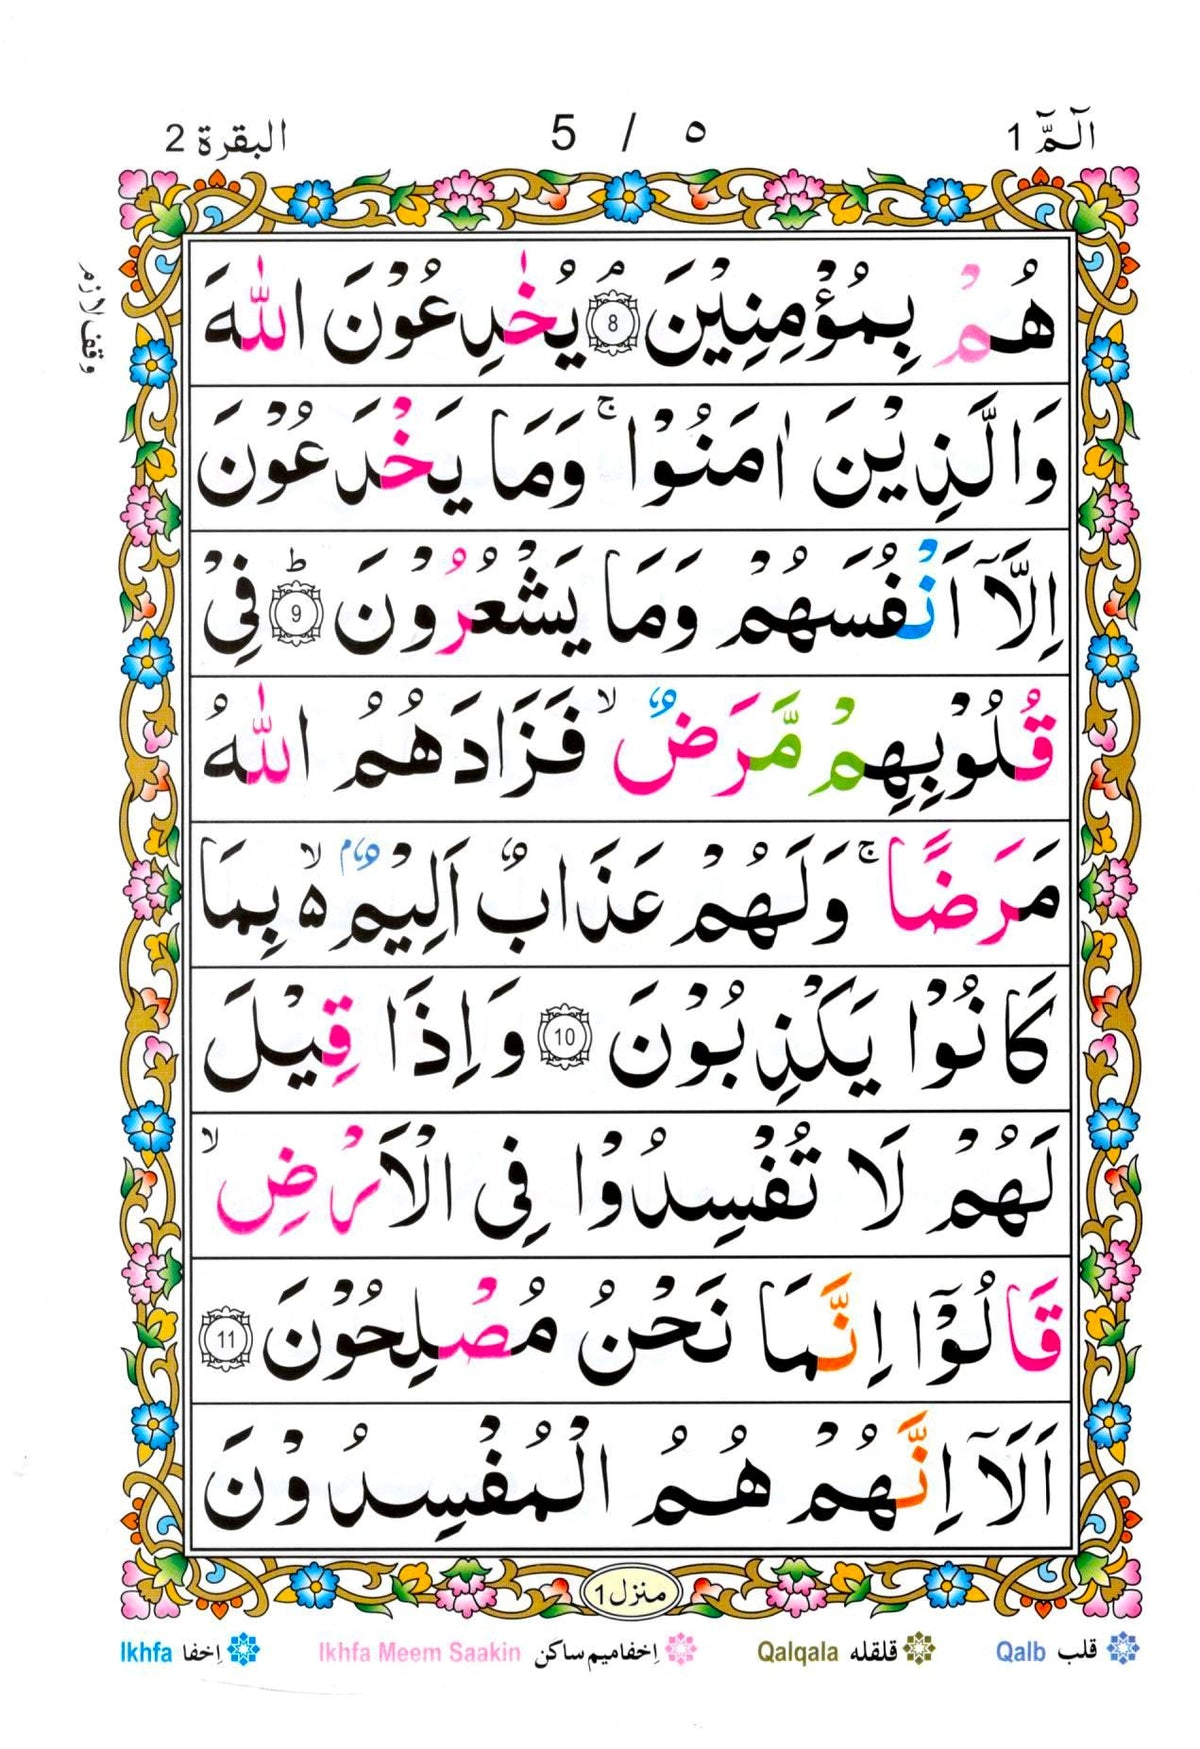 الٓـمّٓ 1
5 / ٥
البقرة 2
وقف لازم
هُمْ بِمُؤْمِنِيْنَ ۘ 8 يُخٰدِعُوْنَ اللّٰهَ
وَالَّذِيْنَ اٰمَنُوْا ۚ وَمَا يَخْدَعُوْنَ
اِلَّاۤ اَنْفُسَهُمْ وَمَا يَشْعُرُوْنَ ؕ 9 فِيْ
قُلُوْبِهِمْ مَّرَضٌ ۙ فَزَادَهُمُ اللّٰهُ
مَرَضًا ۚ وَلَهُمْ عَذَابٌ اَلِيْمٌۢ ۵ ۙ بِمَا
كَانُوْا يَكْذِبُوْنَ 10 وَاِذَا قِيْلَ
لَهُمْ لَا تُفْسِدُوْا فِى الْاَرْضِ ۙ
قَالُوْۤا اِنَّمَا نَحْنُ مُصْلِحُوْنَ 11
اَلَاۤ اِنَّهُمْ هُمُ الْمُفْسِدُوْنَ
منزل 1
Ikhfa اِخفا Ikhfa Meem Saakin اِخفامیم ساکن Qalqala قلقله Qalb قلب